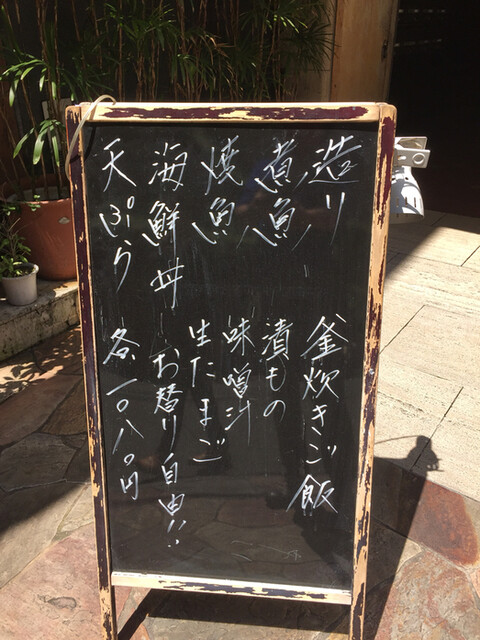 造り
煮魚
焼魚
海鮮丼
天ぷら
釜炊きご飯
漬もの
味噌汁
生たまご
お替り自由!!
各一〇八〇円